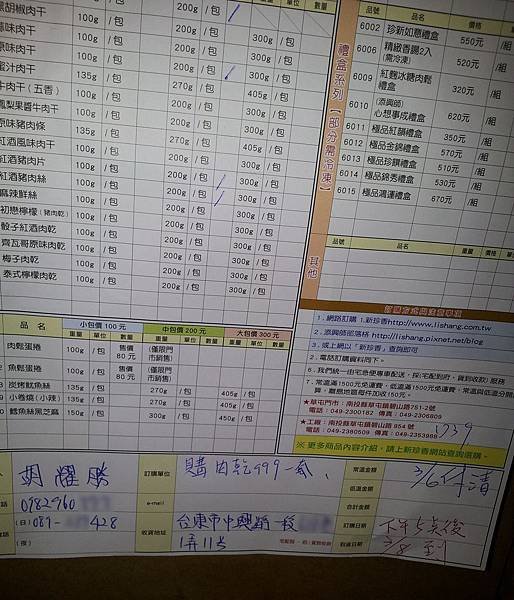 黑胡椒肉干 200g /包
肉干 100g /包 200g /包 300g /包
味肉干 100g /包 200g /包 300g /包
原味肉干 100g /包 200g /包 300g /包
蜜汁肉干 135g /包 270g /包 405g /包
牛肉干(五香) 100g /包 200g /包 300g /包
鳳梨果醬牛肉干 100g /包 200g /包 300g /包
原味豬肉條 135g /包 270g /包 405g /包
紅酒風味肉干 100g /包 200g /包 300g /包
紅酒豬肉片 100g /包 200g /包 300g /包
豬肉絲 100g /包 200g /包 300g /包
麻辣鮮絲 100g /包 200g /包 300g /包
初戀檸檬(豬肉乾) 100g /包 200g /包 300g /包
骰子紅酒肉乾 100g /包 200g /包 300g /包
齊瓦哥原味肉乾 100g /包 200g /包 300g /包
梅子肉乾 100g /包 200g /包 300g /包
泰式檸檬肉乾 100g /包 200g /包 300g /包
品名 小包價 100 元 中包價 200 元 大包價 300 元
重量 單位 數量 重量 單位 數量 重量 單位 數量
肉鬆蛋捲 100g /包 售價 80 元 (僅限門市銷售)
魚鬆蛋捲 100g /包 售價 80 元 (僅限門市銷售)
炭烤魷魚絲 135g /包 270g /包 405g /包
小卷燒(小辣) 135g /包 270g /包 405g /包
鱈魚絲黑芝麻 150g /包 300g /包 450g /包
禮盒系列(部分需冷凍)
品號 品名 價格 單位
6002 珍新如意禮盒 550元 /組
6006 精緻香腸2入(需冷凍) 520元 /組
6009 紅麴冰糖肉鬆禮盒 320元 /組
6010 (添興師)心想事成禮盒 620元 /組
6011 極品紅韻禮盒 350元 /組
6012 極品金錦禮盒 570元 /組
6013 極品珍饌禮盒 510元 /組
6014 極品錦秀禮盒 530元 /組
6015 極品鴻運禮盒 670元 /組
其他
品號 品名 重量 價格 單位
訂購方式與注意事項
1.網路訂購 1.新珍香http://www.lishang.com.tw
2.添興師部落格 http://lishang.pixnet.net/blog
3.或上網以「新珍香」查詢即可
2.電話訂購資料同下。
6.我們統一由宅急便專車配送,採(宅配到府,貨到收款)服務
7.常溫滿1500元免運費,低溫滿1500元免運費,常溫與低溫分開計算,離島地區每件加收150元。
★草屯門市:南投縣草屯鎮碧山路751-2號
電話:049-2300182 傳真:049-2306809
★工廠:南投縣草屯鎮碧山路 954 號
電話:049-2380509 傳真:049-2353968
1739
※ 更多商品內容介紹,請上新珍香網站查詢選購。
胡耀勝
訂購單位 購肉乾999一氣、
常溫金額 3/6付清
低溫金額
電話 0982960
(日) 089- 428
(夜)
e-mail
合計金額
收貨地址 台東市中興路一段
1弄11号
訂購日期 下午5点後
到貨日期 3/8 到